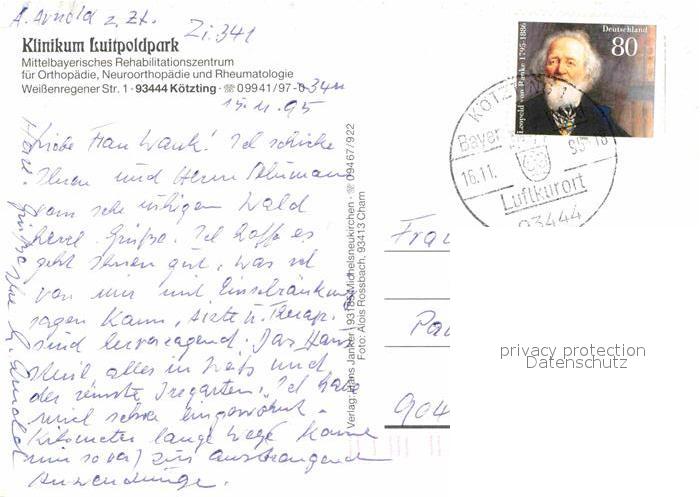 A. Arnold z. Zt. Zi. 341
Klinikum Luitpoldpark
Mittelbayerisches Rehabilitationszentrum
für Orthopädie, Neuroorthopädie und Rheumatologie
Weißenregener Str. 1 · 93444 Kötzting · ☏ 09941/97-0
15.11.95
Liebe Frau Wank! Ich schicke
Ihnen und Herrn
vom sehr ruhigen Wald
herzl. Grüße. Ich hoffe es
geht Ihnen gut, was ich
von mir mit Einschränkung
sagen kann, Ärzte u. Therap.
sind hervorragend. Das Haus
alles in Weiß und
der reinste Irrgarten. Ich habe
mich schon eingewöhnt.
Kilometer lange Wege
zu anstrengend
Anwendungen.
Grüße Ihre A. Arnold
Verlag: Hans Janker, 93185 Michelsneukirchen · ☏ 09467/922
Foto: Alois Rossbach, 93413 Cham
Deutschland
80
Leopold von Ranke 1795-1886
KÖTZTING
Bayer.
16.11.
95-18
Luftkurort
93444
Frau
904
privacy protection
Datenschutz